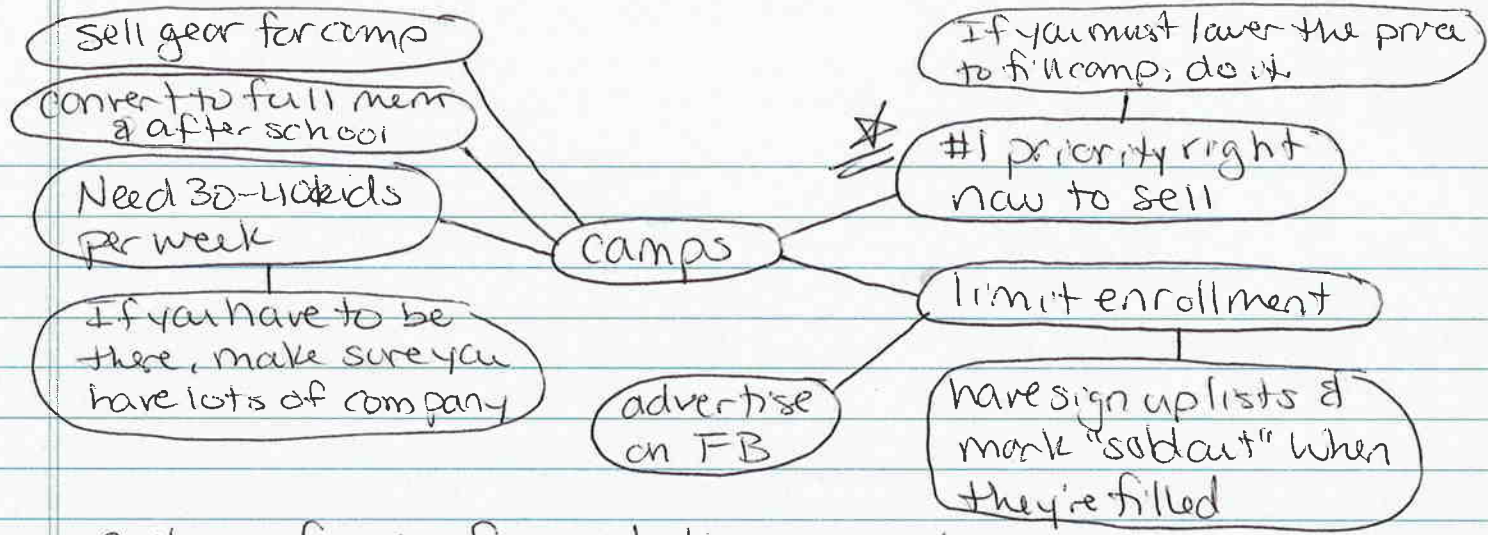 sell gear for camp
convert to full mem
& after school
Need 30-40 kids
per week
If you have to be
there, make sure you
have lots of company
camps
If you must lower the price
to fill camp, do it
#1 priority right
now to sell
limit enrollment
advertise
on FB
have sign up lists &
mark "sold out" when
they're filled